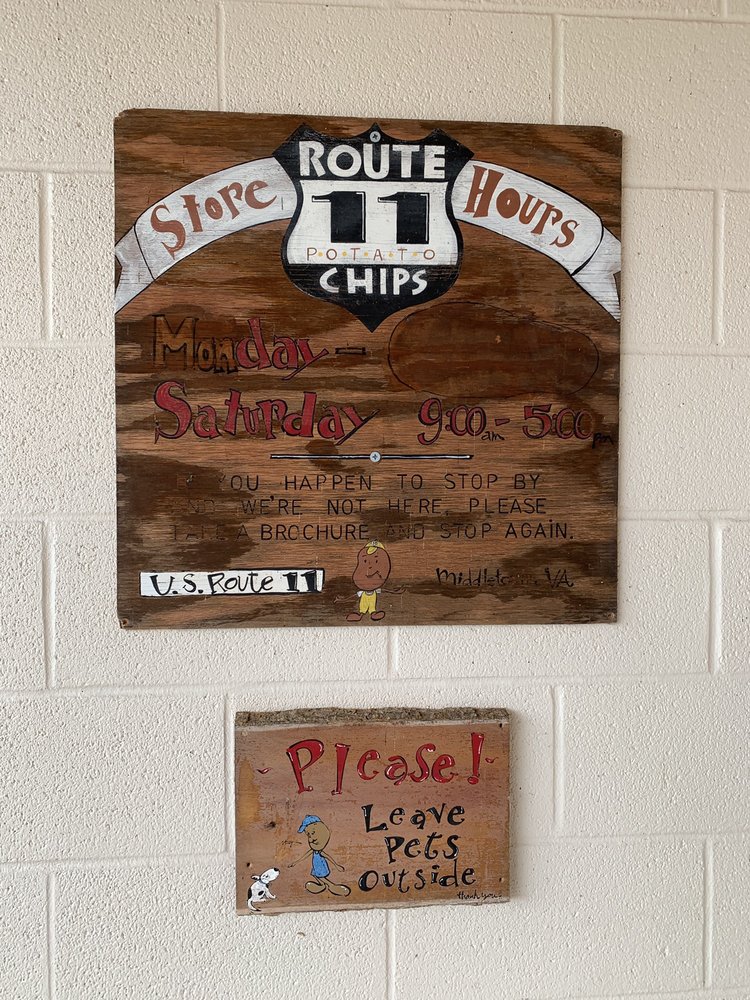 ROUTE
11
P·O·T·A·T·O
CHIPS
Store Hours
Monday -
Saturday 9:00 am - 5:00 pm
IF YOU HAPPEN TO STOP BY
AND WE'RE NOT HERE, PLEASE
TAKE A BROCHURE AND STOP AGAIN.
U.S. Route 11
Middletown, VA.
- Please! -
Leave
Pets
Outside
thank you!